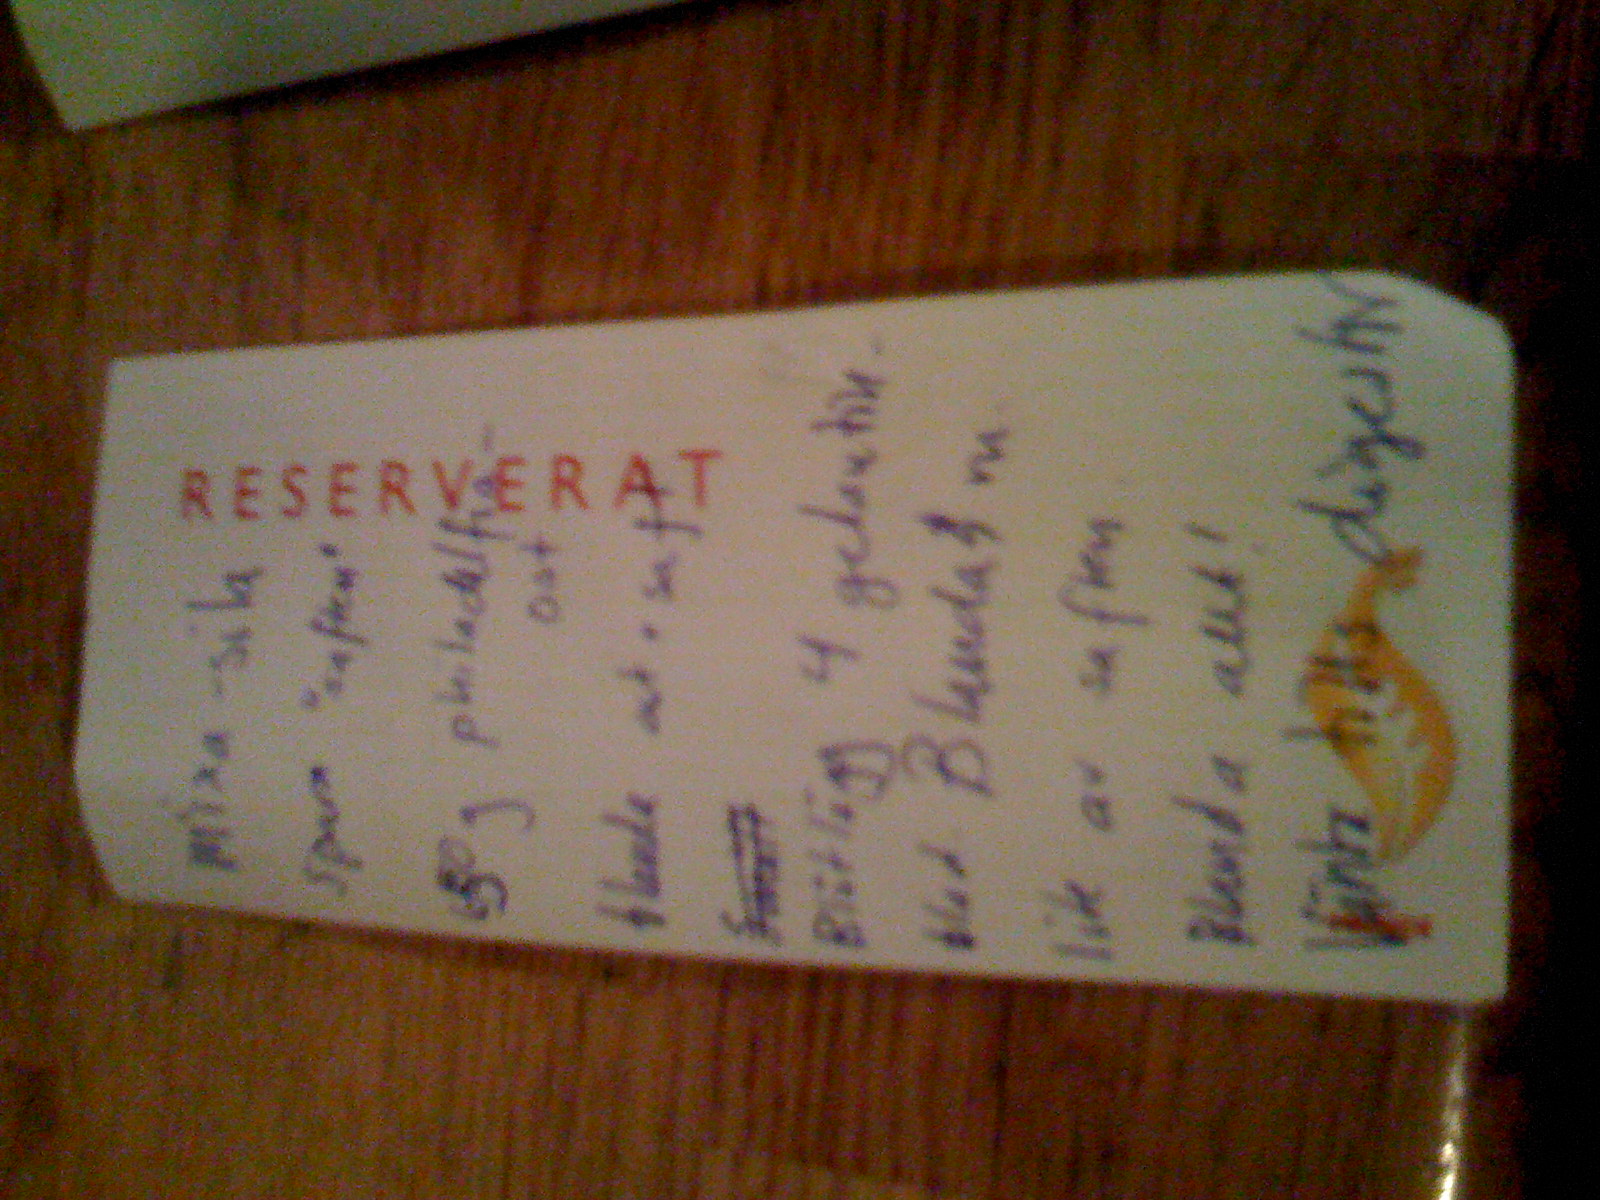 mixa - sila
spara "saften"
g philadelfia-
ost
blanda ost + saft
Blötlägg 4 gelantin-
blad. Blanda m.
lite av saften
Blanda allt!
Vänta tills
RESERVERAT